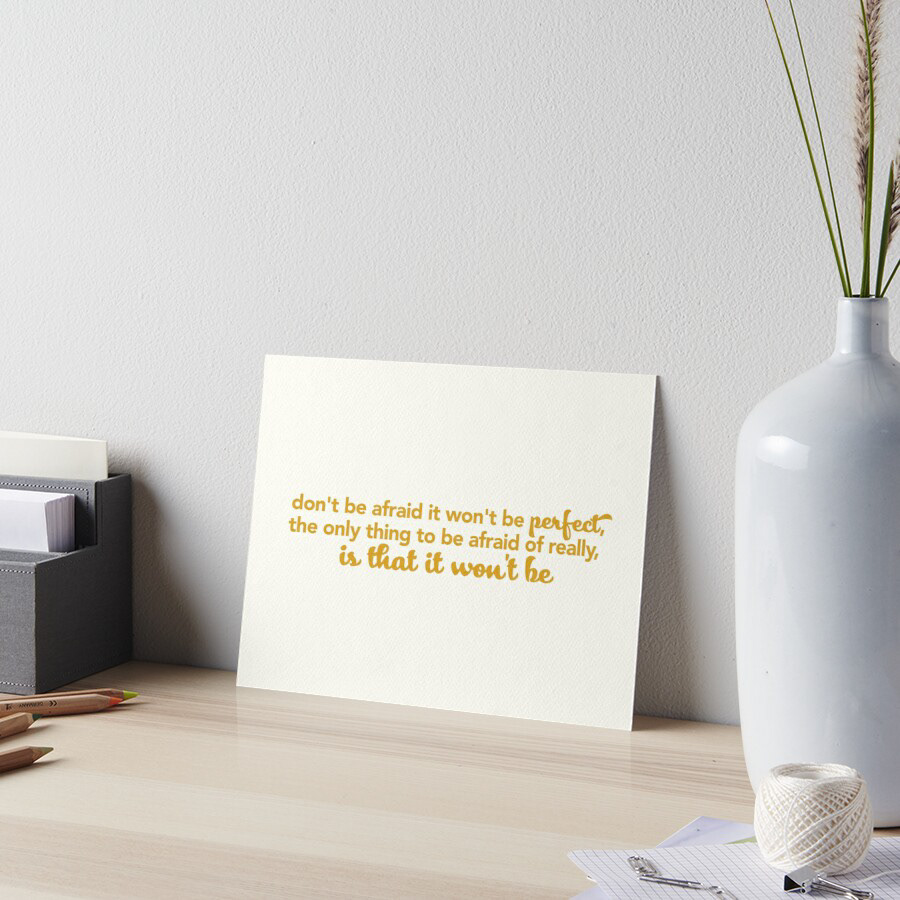 don't be afraid it won't be perfect,
the only thing to be afraid of really,
is that it won't be
GERMANY